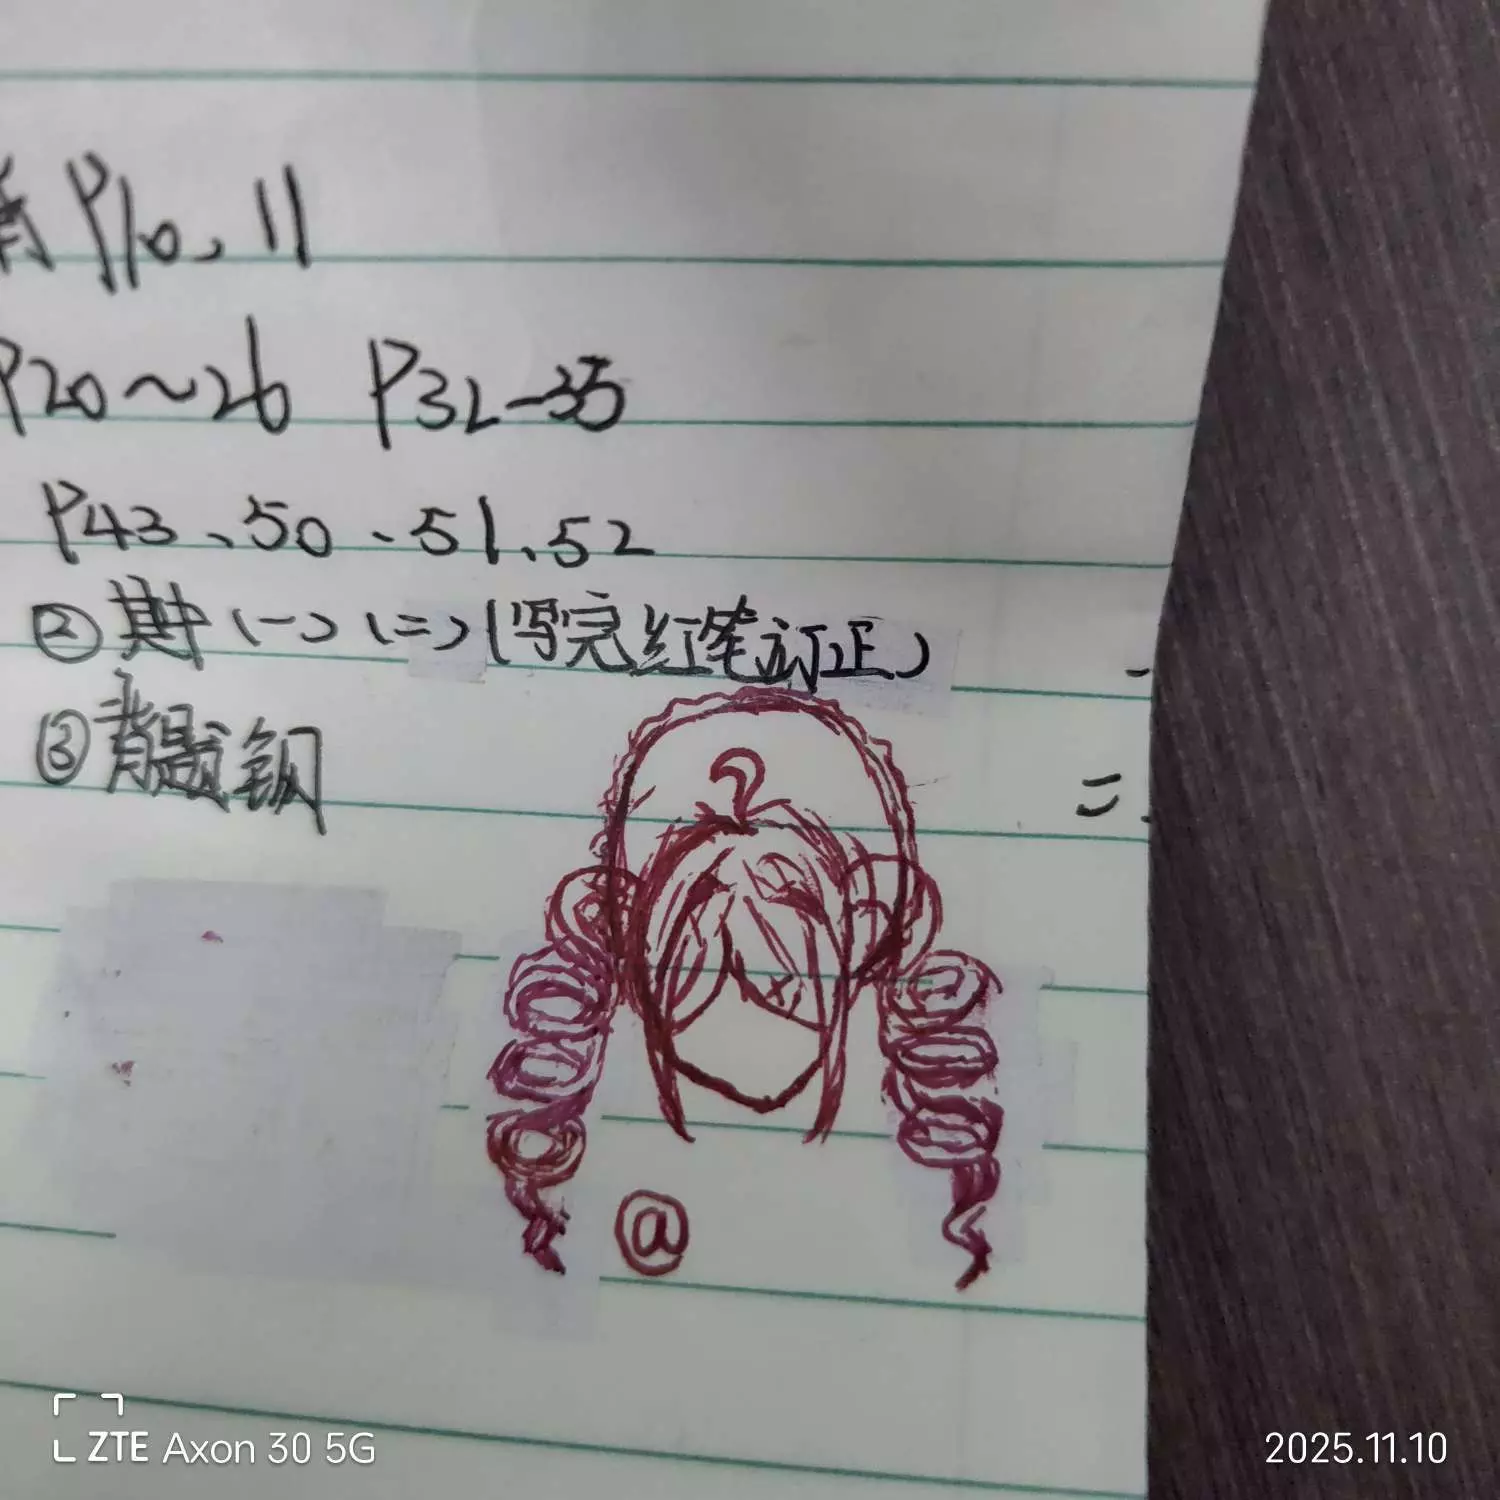 P10、11
P20～26 P32-35
P43、50、51、52
②期中(一)(二)(写完红笔订正)
③背题纲
=
@
ZTE Axon 30 5G
2025.11.10